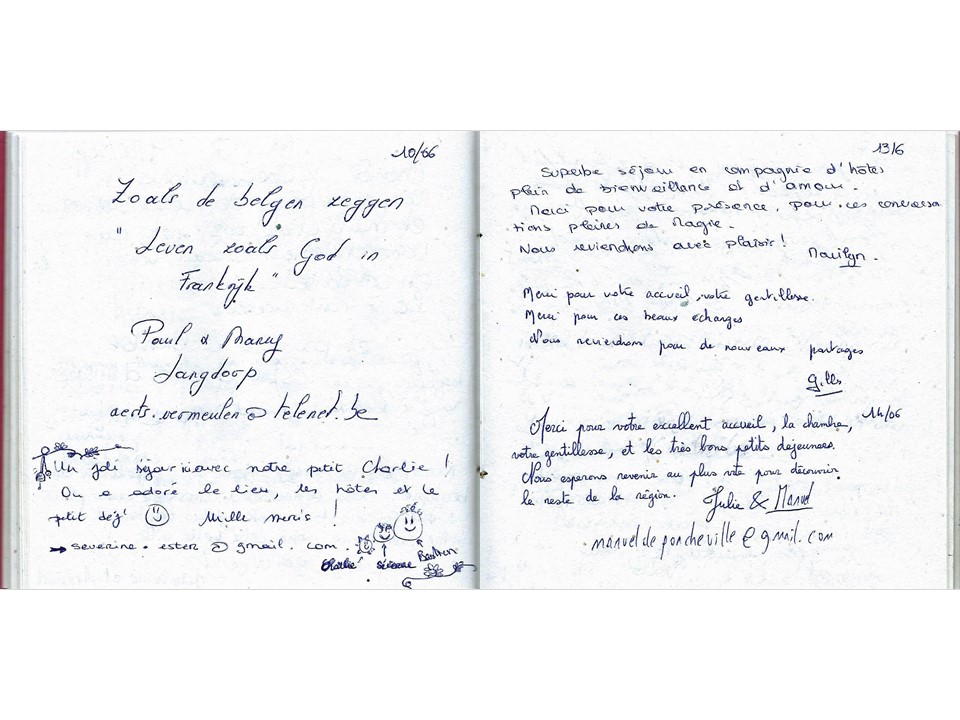 10/06
Zoals de belgen zeggen
" Leven zoals God in
Frankrijk "
Paul & Marny
Langdorp
aerts.vermeulen@telenet.be
Un joli séjour avec notre petit Charlie !
On a adoré le lieu, les hôtes et le
petit déj' Mille mercis !
severine.ester@gmail.com
Charlie Séverine Bastien
13/6
Superbe séjour en compagnie d'hôtes
plein de bienveillance et d'amour.
Merci pour votre présence, pour ces conversa
tions pleines de Magie.
Nous reviendrons avec plaisir !
Marilyn.
Merci pour votre accueil, votre gentillesse.
Merci pour ces beaux échanges
Nous reviendrons pour de nouveaux partages
Gilles
14/06
Merci pour votre excellent accueil, la chambre,
votre gentillesse, et les très bons petits dejeuners.
Nous esperons revenir au plus vite pour découvrir
le reste de la région. Julie & Manuel
manueldeponcheville@gmail.com